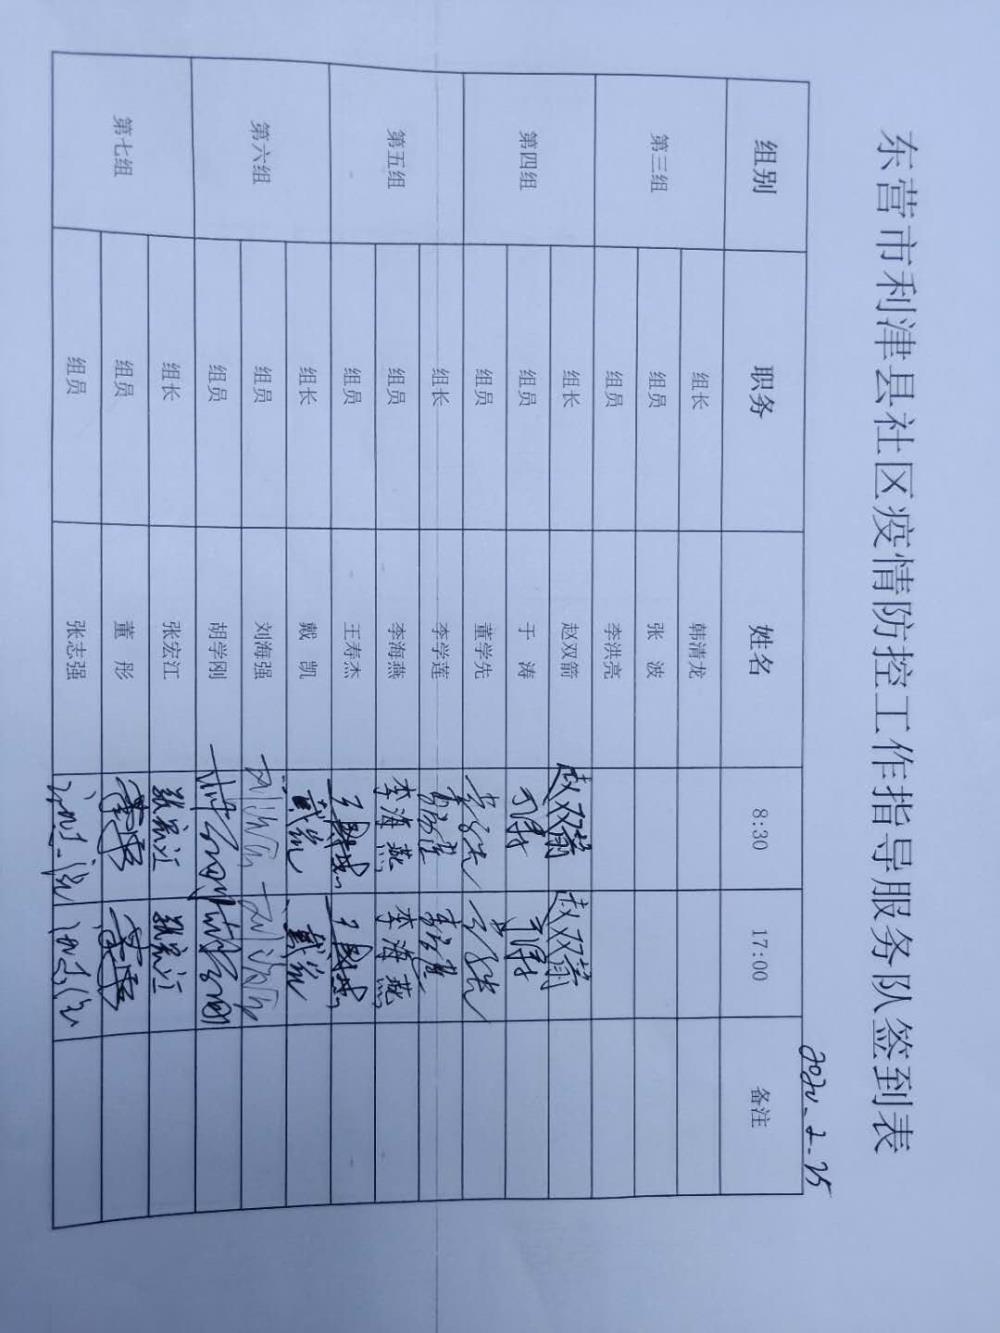 东营市利津县社区疫情防控工作指导服务队签到表
2020-2-25
组别 职务 姓名 8:30 17:00 备注
第三组 组长 韩清龙
组员 张 波
组员 李洪亮
第四组 组长 赵双箭 赵双箭 赵双箭
组员 于 涛 于涛 于涛
组员 董学先
第五组 组长 李学莲
组员 李海燕 李海燕 李海燕
组员 王寿杰
第六组 组长 戴 凯 戴凯 戴凯
组员 刘海强 刘海强 刘海强
组员 胡学刚
第七组 组长 张宏江 张宏江 张宏江
组员 董 彤
组员 张志强